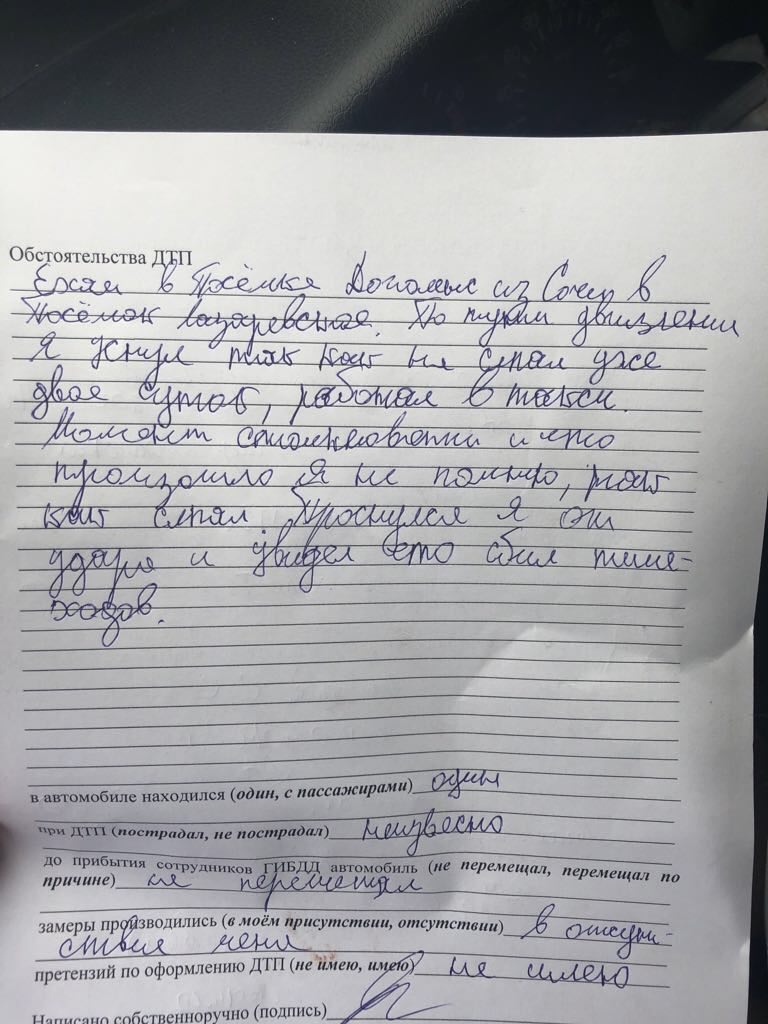 Обстоятельства ДТП
Ехал в Посёлке Дагомыс из Сочи в
Посёлок Лазаревское. По пути движения
Я уснул так как не спал уже
двое суток, работал в такси.
Момент столкновения и что
произошло Я не помню, так
как спал. Проснулся я от
удара и увидел что сбил пише-
ходов.
в автомобиле находился (один, с пассажирами) один
при ДТП (пострадал, не пострадал) неизвесно
до прибытия сотрудников ГИБДД автомобиль (не перемещал, перемещал по
причине) не перемещал
замеры производились (в моём присутствии, отсутствии) в отсут-
ствии меня
претензий по оформлению ДТП (не имею, имею) не имею
Написано собственноручно (подпись)